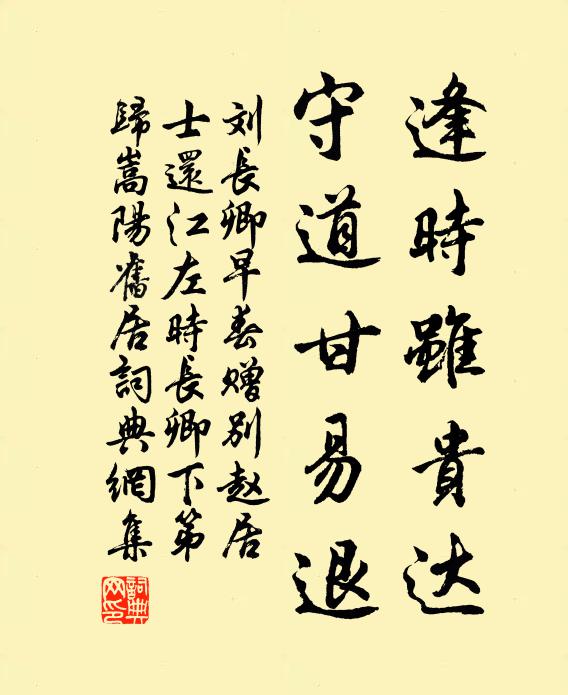 逢時雖貴达
守道甘易退
刘長卿早春赠别赵居
士還江左時長卿下第
歸嵩陽舊居詞典網集
詞典
网印